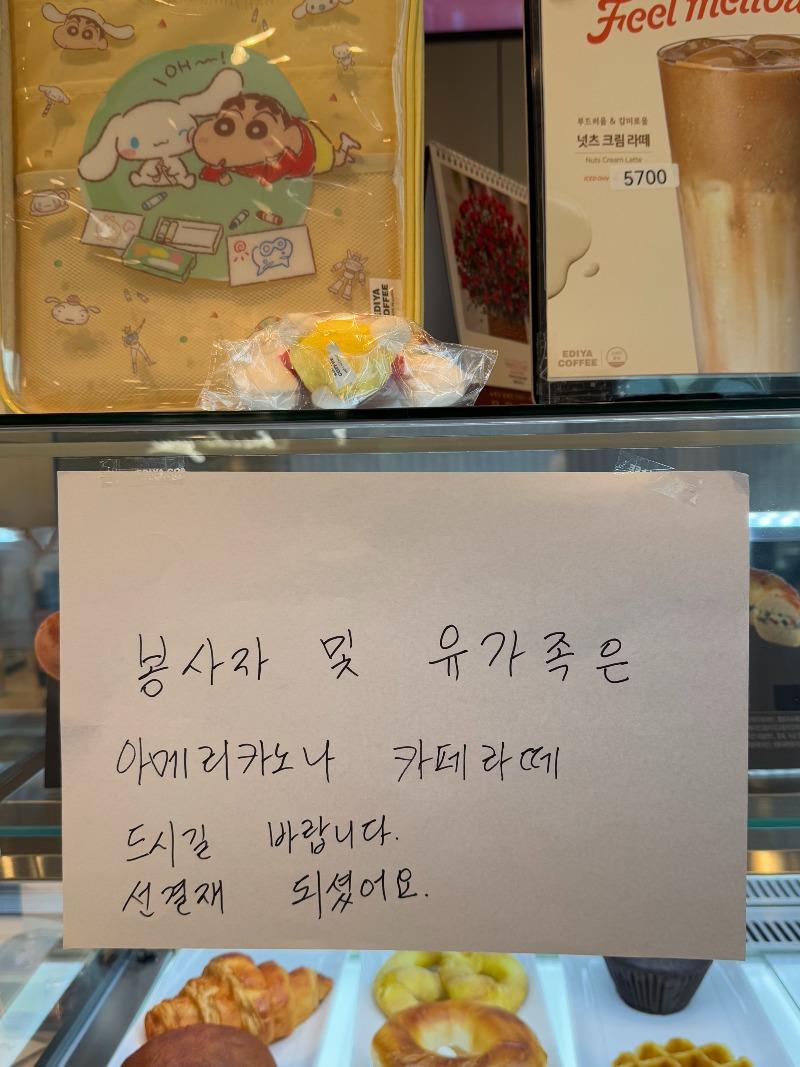 OH~!
Feel mellow
부드러움 & 감미로움
넛츠 크림 라떼
Nuts Cream Latte
ICED Only
5700
EDIYA
COFFEE
EDIYA
COFFEE
봉사자 및 유가족은
아메리카노나 카페라떼
드시길 바랍니다.
선결재 되셨어요.